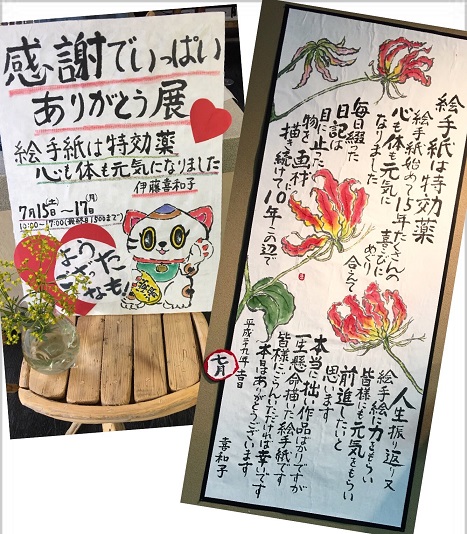 感謝でいっぱい
ありがとう展
絵手紙は特効薬
心も体も元気になりました
伊藤喜和子
7月15日(土)～17日(月)
10:00～17:00(最終日15:00まで)
ようこそ
おいでた
なも!
絵手紙は特効薬
絵手紙始めて15年たくさんの
心も体も元気に喜びに
なりましためぐり合えて
毎日綴った
日記は
目に止った
物を画材に
描き続けて10年この辺で
人生振り返り又
絵手紙に力をもらい
皆様にも元気をもらい
前進したいと
思います
本当に拙い作品ばかりですが
一生懸命描いた絵手紙です
皆様にごらんいただければ幸いです
本日はありがとうございます
平成二十九年吉日
七月
喜和子